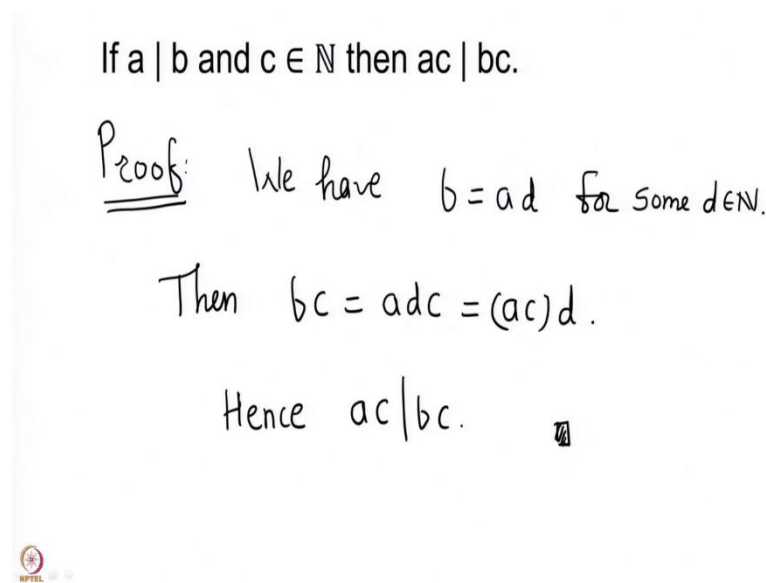 If a | b and c ∈ ℕ then ac | bc.
Proof: We have b = ad for some d∈ℕ.
Then bc = adc = (ac)d.
Hence ac|bc.
NPTEL